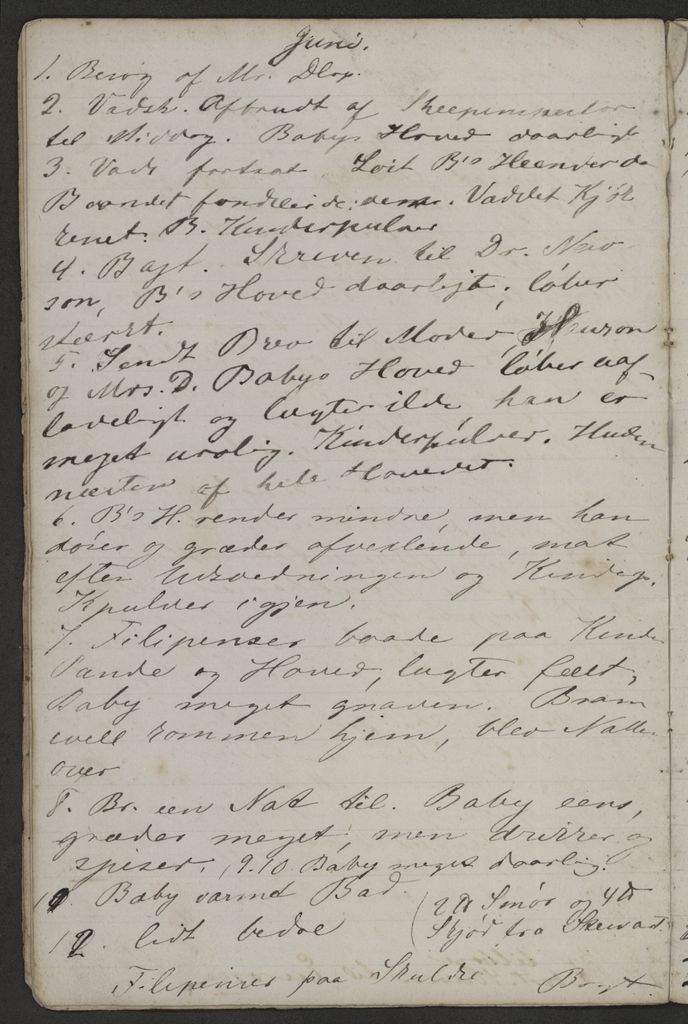 Juni.
1. Besøg af Mr. Dlop.
2. Vadsk. Afbrudt af Sheepinspector
til Middag. Babys Hoved daarligt
3. Vads fortsat B's Heender da
Vaddet Kjøk
kenet. B. Kinderpulver
4. Bagt. Skreven til Dr. New
son, B's Hoved daarligt, løber
stærkt.
5. Sendt Brev til Moder
og Mrs. D. Babys Hoved løber uaf-
ladeligt og lugter ilde, han er
meget urolig. Kinderpulver. Huden
næsten af hele Hovedet.
6. B's H. render mindre, men han
døser og græder afvexlende, mat
efter Udsvedningen og Kinder
pulver igjen.
7. Filipenser baade paa Kind
Pande og Hoved, lugter fælt,
Baby meget gnaven. Bram
well kommen hjem, blev Natten
over
8. Br. een Nat til. Baby eens,
græder meget, men drikker og
spiser. 9.10 Baby meget daarlig.
Baby varmt Bad
(2 ℔ Smør og 4 ℔
12. lidt bedre
Kjød fra Steward.
Filipenser paa Skuldre
Bagt.